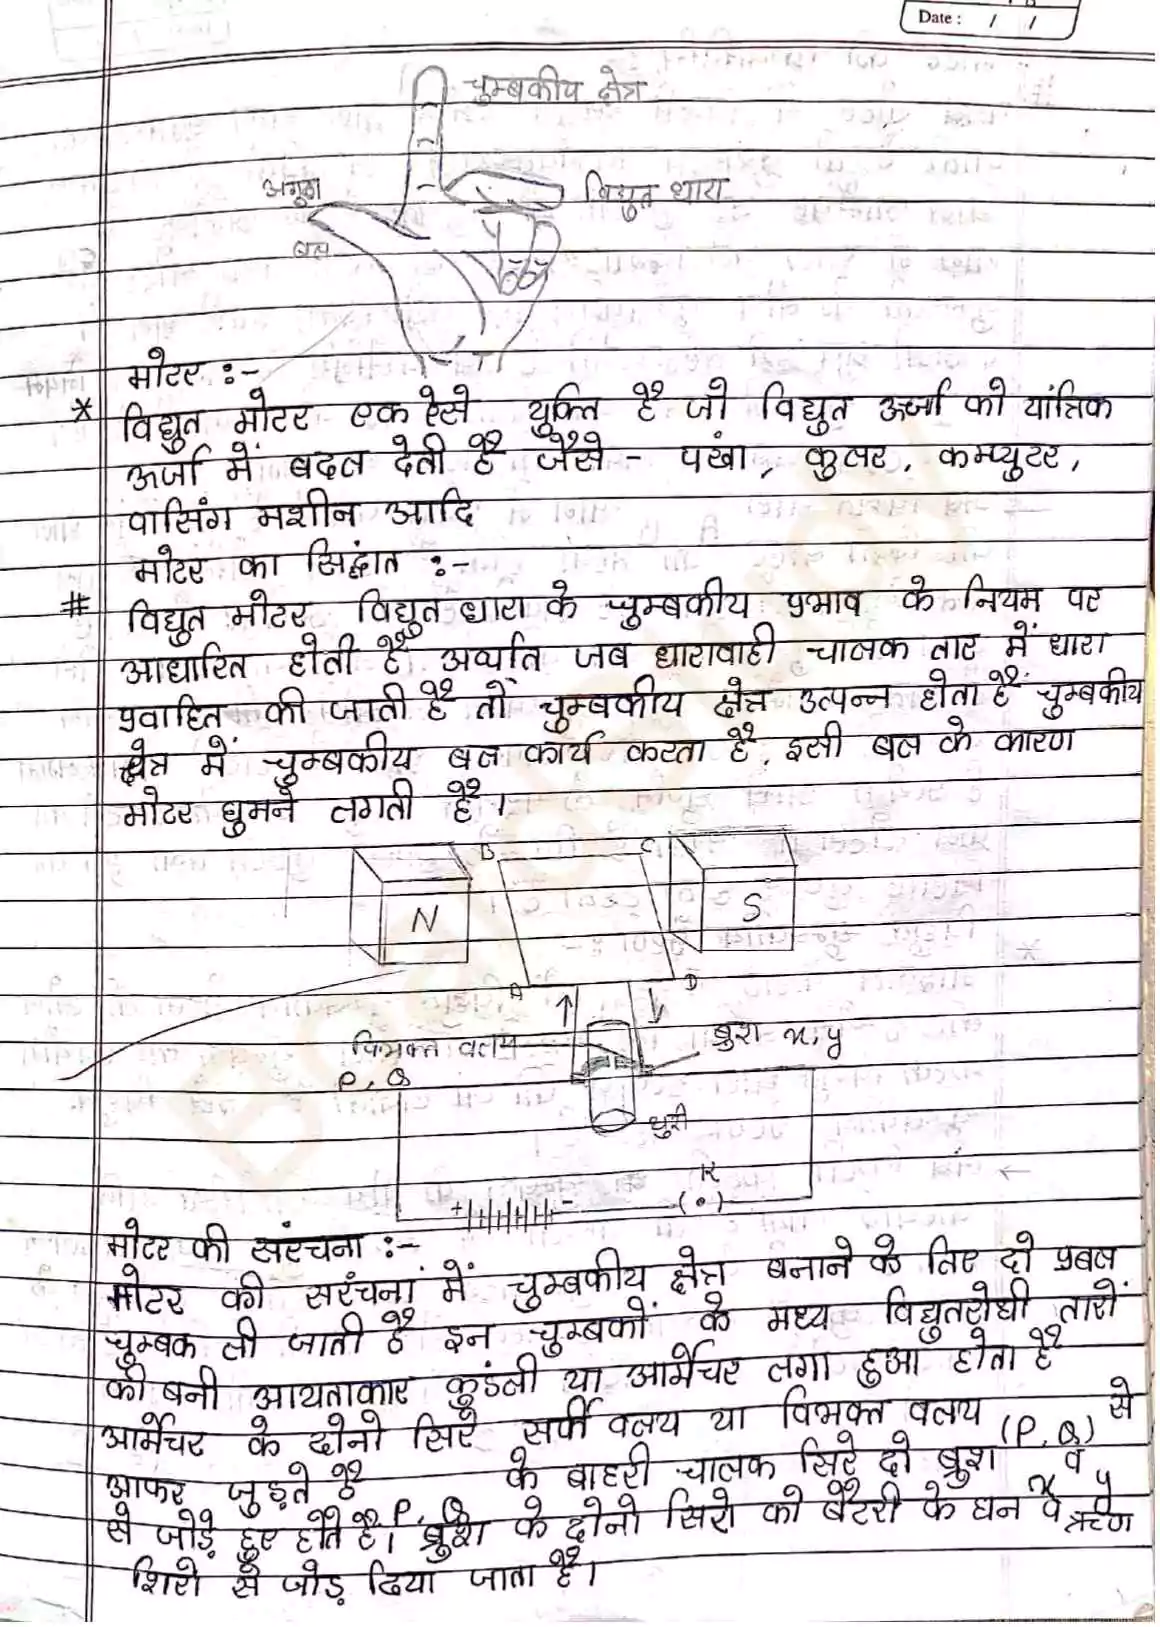 Date : / /
चुम्बकीय क्षेत्र
अगुठा
विद्युत धारा
बल
मोटर :-
* विद्युत मोटर एक ऐसे युक्ति है जो विद्युत ऊर्जा को यांत्रिक
ऊर्जा में बदल देती है जैसे - पंखा, कुलर, कम्प्युटर,
वासिंग मशीन आदि
मोटर का सिद्धांत :-
# विद्युत मोटर विद्युत धारा के चुम्बकीय प्रभाव के नियम पर
आधारित होती है अर्थात जब धारावाही चालक तार में धारा
प्रवाहित की जाती है तो चुम्बकीय क्षेत्र उत्पन्न होता है चुम्बकीय
क्षेत्र में चुम्बकीय बल कार्य करता है, इसी बल के कारण
मोटर घुमने लगती है।
B C
N S
A D
विभक्त वलय ब्रुश x, y
P, Q
धुरी
K
+ - (•)
मोटर की संरचना :-
मोटर की सरंचना में चुम्बकीय क्षेत्र बनाने के लिए दो प्रबल
चुम्बक ली जाती है इन चुम्बकों के मध्य विद्युतरोधी तारों
की बनी आयताकार कुडंली या आर्मेचर लगा हुआ होता है
आर्मेचर के दोनो सिरे सर्फी वलय या विभक्त वलय (P, Q) से
आकर जुड़ते है P, Q के बाहरी चालक सिरे दो ब्रुश x व y
से जोड़े हुए होते है। ब्रुश के दोनो सिरो को बैटरी के धन व ऋण
शिरो से जोड़ दिया जाता है।